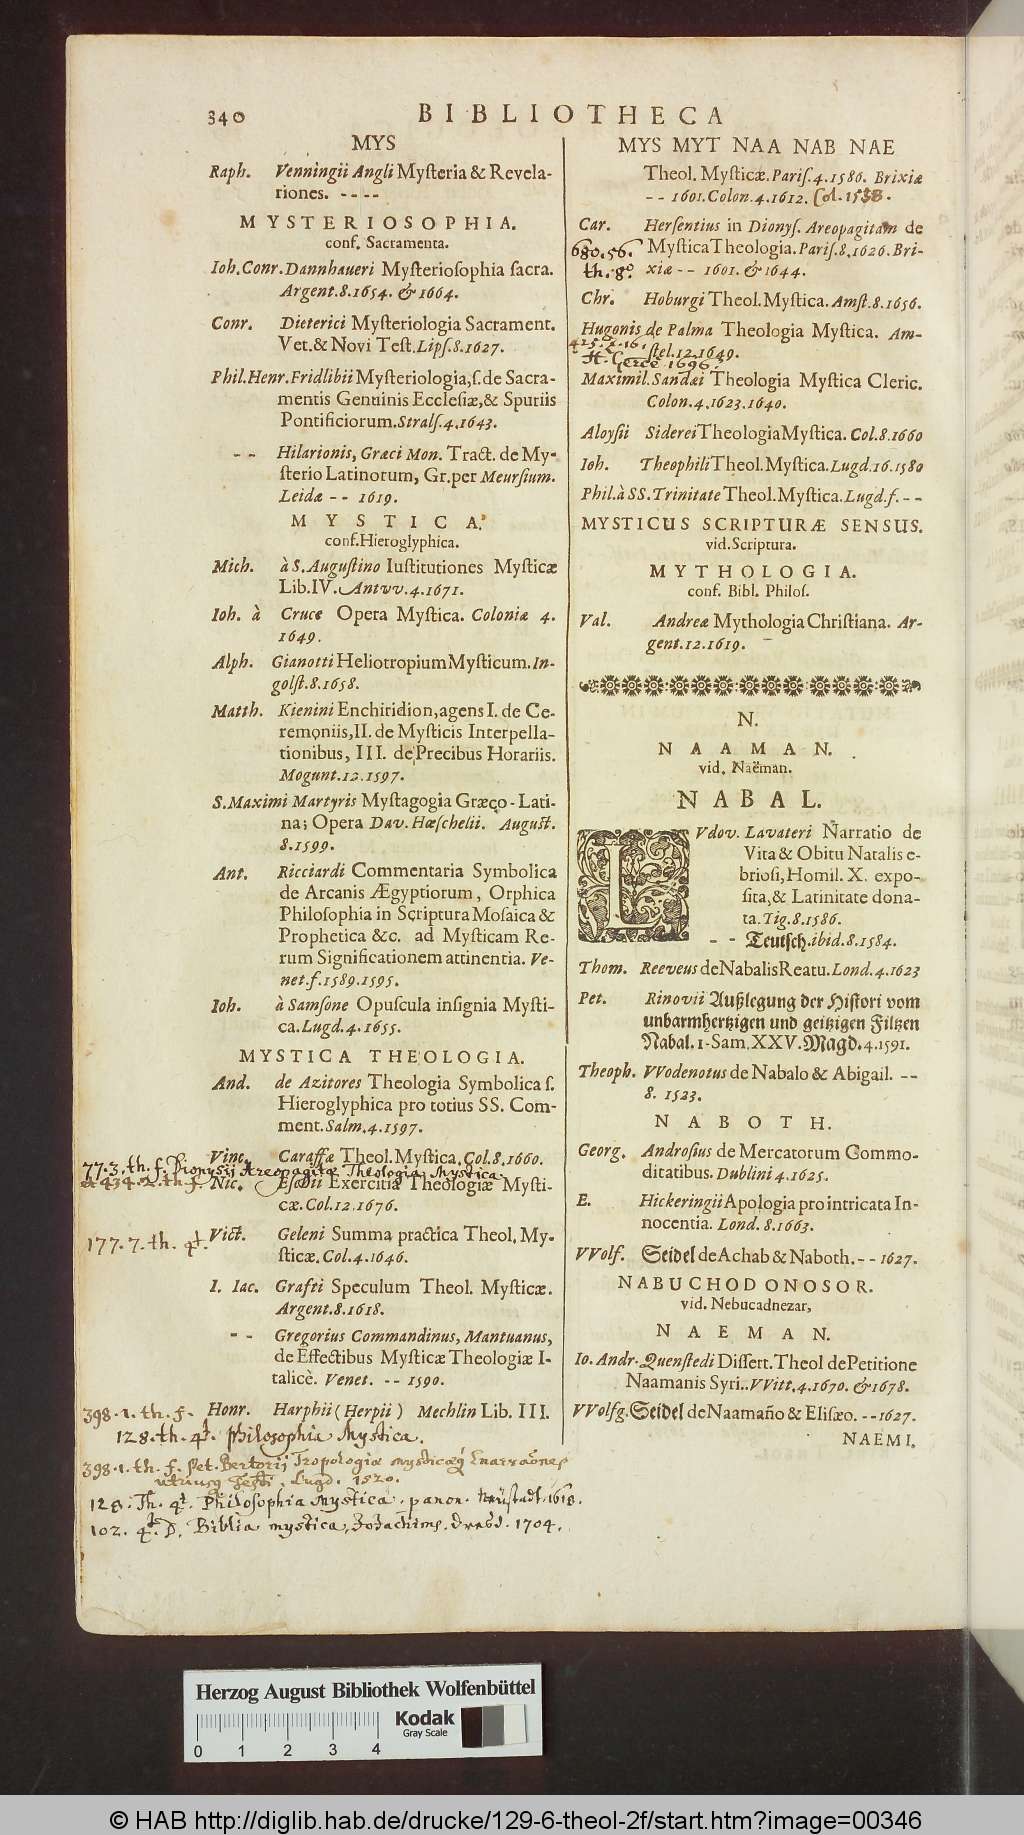 340 BIBLIOTHECA
MYS
Raph. Venningii Angli Myſteria & Revela-
riones. - - - -
MYSTERIOSOPHIA.
conf. Sacramenta.
Ioh. Conr. Dannhaueri Myſterioſophia ſacra.
Argent. 8. 1654. & 1664.
Conr. Dieterici Myſteriologia Sacrament.
Vet. & Novi Teſt. Lipſ. 8. 1627.
Phil. Henr. Fridlibii Myſteriologia, ſ. de Sacra-
mentis Genuinis Eccleſiæ, & Spuriis
Pontificiorum. Stralſ. 4. 1643.
- - Hilarionis, Græci Mon. Tract. de My-
ſterio Latinorum, Gr. per Meurſium.
Leidæ - - 1619.
MYSTICA.
conf. Hieroglyphica.
Mich. à S. Auguſtino Iuſtitutiones Myſticæ
Lib. IV. Antvv. 4. 1671.
Ioh. à Cruce Opera Myſtica. Coloniæ 4.
1649.
Alph. Gianotti Heliotropium Myſticum. In-
golſt. 8. 1658.
Matth. Kienini Enchiridion, agens I. de Ce-
remoniis, II. de Myſticis Interpella-
tionibus, III. de Precibus Horariis.
Mogunt. 12. 1597.
S. Maximi Martyris Myſtagogia Græco-Lati-
na; Opera Dav. Hæſchelii. Auguſt.
8. 1599.
Ant. Ricciardi Commentaria Symbolica
de Arcanis Ægyptiorum, Orphica
Philoſophia in Scriptura Moſaica &
Prophetica &c. ad Myſticam Re-
rum Significationem attinentia. Ve-
net. f. 1589. 1595.
Ioh. à Samſone Opuſcula inſignia Myſti-
ca. Lugd. 4. 1655.
MYSTICA THEOLOGIA.
And. de Azitores Theologia Symbolica ſ.
Hieroglyphica pro totius SS. Com-
ment. Salm. 4. 1597.
Vinc. Caraffæ Theol. Myſtica. Col. 8. 1660.
77. 3. th. f. Dionysij Areopagitæ Theologia Mystica
& 434. 2. th. f. Nic. Eſchii Exercitia Theologiæ Myſti-
cæ. Col. 12. 1676.
177. 7. th. 4t. Vict. Geleni Summa practica Theol. My-
ſticæ. Col. 4. 1646.
I. Iac. Grafti Speculum Theol. Myſticæ.
Argent. 8. 1618.
- - Gregorius Commandinus, Mantuanus,
de Effectibus Myſticæ Theologiæ I-
talicè. Venet. - - 1590.
398. 1. th. f. Honr. Harphii (Herpii) Mechlin Lib. III.
128. th. 4t. Philosophia Mystica.
398. 1. th. f. Pet. Bertorij Tropologiæ mysticæq Enarrationes
utriusq Testi. Lugd. 1520.
128. Th. 4t. Philosophia Mystica. panon. Neustadt. 1618.
102. 4t. D. Biblia mystica, Dresd. 1704.
MYS MYT NAA NAB NAE
Theol. Myſticæ. Pariſ. 4. 1586. Brixiæ
- - 1601. Colon. 4. 1612. Col. 1538.
Car. Herſentius in Dionyſ. Areopagitam de
680. 56. Myſtica Theologia. Pariſ. 8. 1626. Bri-
th. 8o. xiæ - - 1601. & 1644.
Chr. Hoburgi Theol. Myſtica. Amſt. 8. 1656.
Hugonis de Palma Theologia Myſtica. Am-
ſtel. 12. 1649.
1696.
Maximil. Sandæi Theologia Myſtica Cleric.
Colon. 4. 1623. 1640.
Aloyſii Siderei Theologia Myſtica. Col. 8. 1660
Ioh. Theophili Theol. Myſtica. Lugd. 16. 1580
Phil. à SS. Trinitate Theol. Myſtica. Lugd. f. - -
MYSTICUS SCRIPTURÆ SENSUS.
vid. Scriptura.
MYTHOLOGIA.
conf. Bibl. Philoſ.
Val. Andreæ Mythologia Chriſtiana. Ar-
gent. 12. 1619.
N.
NAAMAN.
vid. Naëman.
NABAL.
LVdov. Lavateri Narratio de
Vita & Obitu Natalis e-
brioſi, Homil. X. expo-
ſita, & Latinitate dona-
ta. Tig. 8. 1586.
- - Teutſch. ibid. 8. 1584.
Thom. Reeveus de Nabalis Reatu. Lond. 4. 1623
Pet. Rinovii Außlegung der Hiſtori vom
unbarmhertzigen und geitzigen Filtzen
Nabal. 1. Sam. XXV. Magd. 4. 1591.
Theoph. VVodenotus de Nabalo & Abigail. - -
8. 1523.
NABOTH.
Georg. Androſius de Mercatorum Commo-
ditatibus. Dublini 4. 1625.
E. Hickeringii Apologia pro intricata In-
nocentia. Lond. 8. 1663.
VVolf. Seidel de Achab & Naboth. - - 1627.
NABUCHODONOSOR.
vid. Nebucadnezar,
NAEMAN.
Io. Andr. Quenſtedi Diſſert. Theol de Petitione
Naamanis Syri.. VVitt. 4. 1670. & 1678.
VVolfg. Seidel de Naamaño & Eliſæo. - - 1627.
NAEMI.
Herzog August Bibliothek Wolfenbüttel
Kodak
Gray Scale
0 1 2 3 4
© HAB http://diglib.hab.de/drucke/129-6-theol-2f/start.htm?image=00346